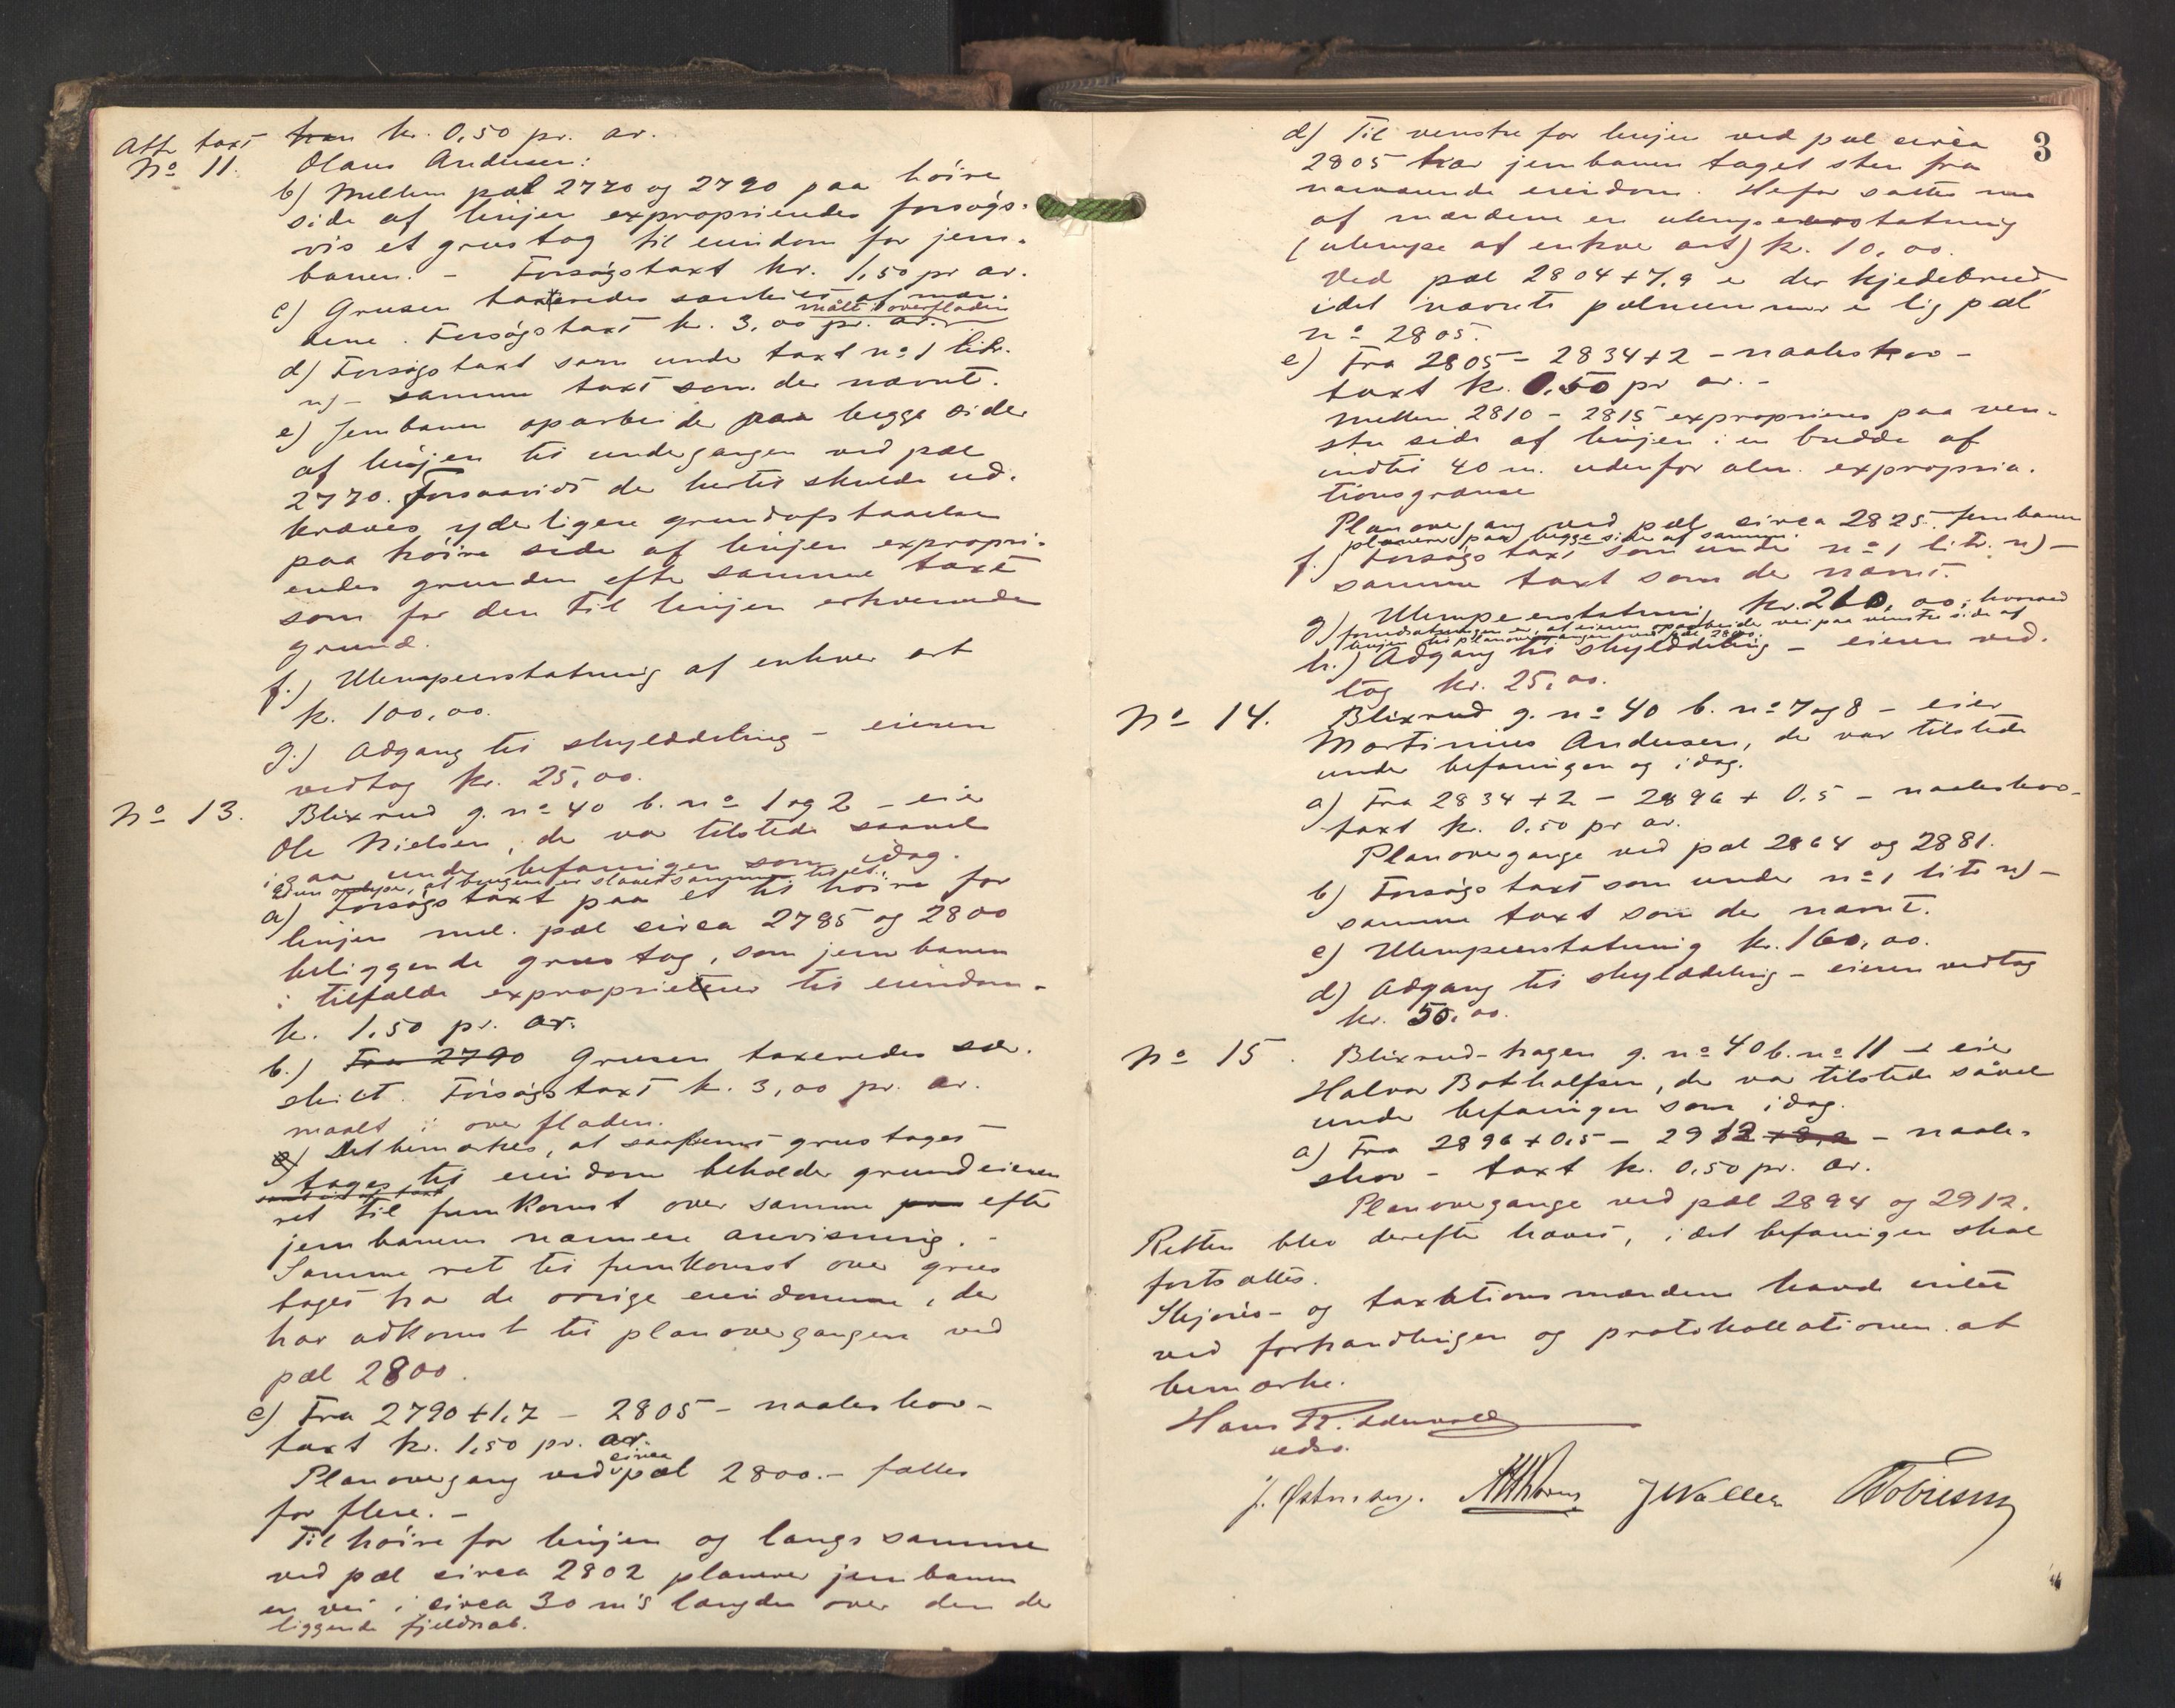 Att. taxt kr. 0,50 pr. ar.
No 11. Olaus Andersen:
b) Mellem pæl 2770 og 2790 paa høire
side af linjen exproprieredes forsøgs-
vis et grustag til eiendom for jern-
banen. - Forsøgstaxt kr. 1,50 pr ar.
c) Grusen taxeredes særskilt af mæn-
målt i overfladen
dene. Forsøgstaxt kr. 3,00 pr. ar.
d) Forsøgstaxt som under taxt no 1 litr.
n) - samme taxt som der nævnt.
e) Jernbanen oparbeider paa begge sider
af linjen til undergangen ved pæl
2770. Forsaavidt der hertil skulde ud-
kræves yderligere grundafstaaelse
paa høire side af linjen expropri-
eredes grunden efter samme taxt
som for den til linjen erhvervede
grund.
f.) Ulempeerstatning af enhver art
kr. 100,00.
g.) Adgang til skylddeling - eieren
vedtog kr. 25,00.
No 13. Blixrud g. no 40 b. no 1 og 2 - eier
Ole Nielsen, der var tilstede saavel
under befaringen som idag.
a) Forsøgstaxt paa et til høire for
linjen mel. pæl circa 2785 og 2800
beliggende grustag, som jernbanen
i tilfælde exproprierer til eiendom -
kr. 1,50 pr. ar.
b.) Fra 2790 Grusen taxeredes sær-
skilt. Forsøgstaxt kr. 3,00 pr. ar.
maalt i overfladen.
Det bemærkes, at saafremt grustaget
tages til eiendom beholder grundeieren
ret til fremkomst over samme paa efter
jernbanens nærmere anvisning. -
Samme ret til fremkomst over grus
taget har de øvrige eiendomme, der
har adkomst til planovergangen ved
pæl 2800.
c) Fra 2790+1,7 - 2805 - naaleskov -
taxt kr. 1,50 pr. ar.
circa
Planovergang ved pæl 2800. - fælles
for flere. -
Til høire for linjen og langs samme
ved pæl circa 2802 planerer jernbanen
en vei i circa 30 m's længde over den der
liggende fjeldnab.
3
d) Til venstre for linjen ved pæl circa
2805 har jernbanen taget sten fra
nærværende eiendom. Herfor sattes nu
af mændene en ulempeerstatning
(ulempe af enhver art) kr. 10,00.
Ved pæl 2804+7,9 er der kjedebrud
idet nævnte pælnummer er lig pæl
no 2805.
e) Fra 2805 - 2834+2 - naaleskov -
taxt kr. 0,50 pr ar. -
Mellem 2810 - 2815 exproprieres paa ven-
stre side af linjen i en bredde af
indtil 40 m. udenfor alm. expropria-
tionsgrænse
Planovergang ved pæl circa 2825. Jernbanen
planerer paa begge sider af samme.
f.) Forsøgstaxt som under no 1 litr. n) -
samme taxt som der nævnt.
g) Ulempeerstatning kr. 210,00, hvorved
forudsætningen er, at eieren oparbeider vei paa venstre side af
linjen til planovergangen ved pæl 2800.
h.) Adgang til skylddeling - eieren ved-
tog kr. 25,00.
No 14. Blixrud g. no 40 b. no 7 og 8 - eier
Martinius Andersen, der var tilstede
under befaringen og idag.
a) Fra 2834+2 - 2896+0,5 - naaleskov -
taxt kr. 0,50 pr ar.
Planovergange ved pæl 2864 og 2881.
b) Forsøgstaxt som under no 1 litr n) -
samme taxt som der nævnt.
c) Ulempeerstatning kr. 160,00.
d) Adgang til skylddeling - eieren vedtog
kr. 50,00.
No 15. Blixrud-hagen g. no 40 b. no 11 - eier
Halvor Botholfsen, der var tilstede såvel
under befaringen som idag.
a) Fra 2896+0,5 - 2912 - naale-
skov - taxt kr. 0,50 pr. ar.
Planovergange ved pæl 2894 og 2912.
Retten blev derefter hævet, idet befaringen skal
fortsættes.
Skjøns- og taxationsmændene havde intet
ved forhandlingen og protokollationen at
bemerke.
Hans
J. Østensen. J Wallen Tobiesen